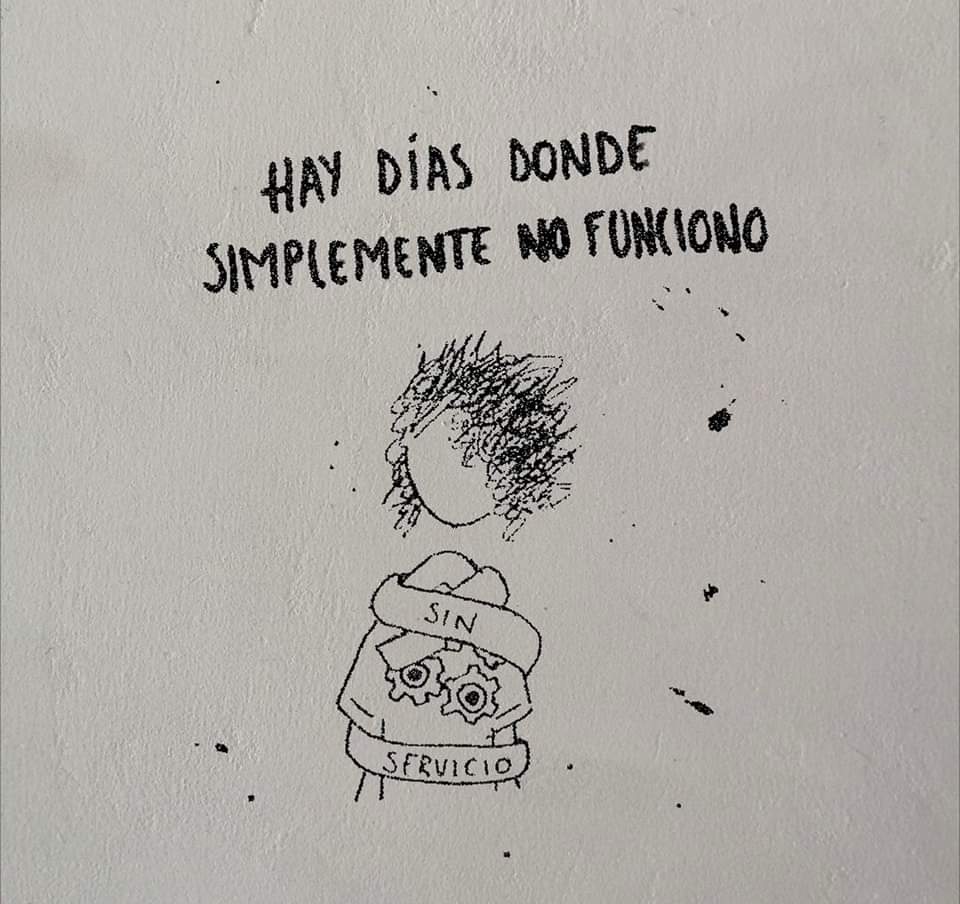 HAY DÍAS DONDE
SIMPLEMENTE NO FUNCIONO
SIN
SERVICIO